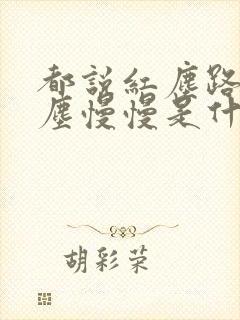 都説紅塵路
塵慢慢是什
胡彩荣